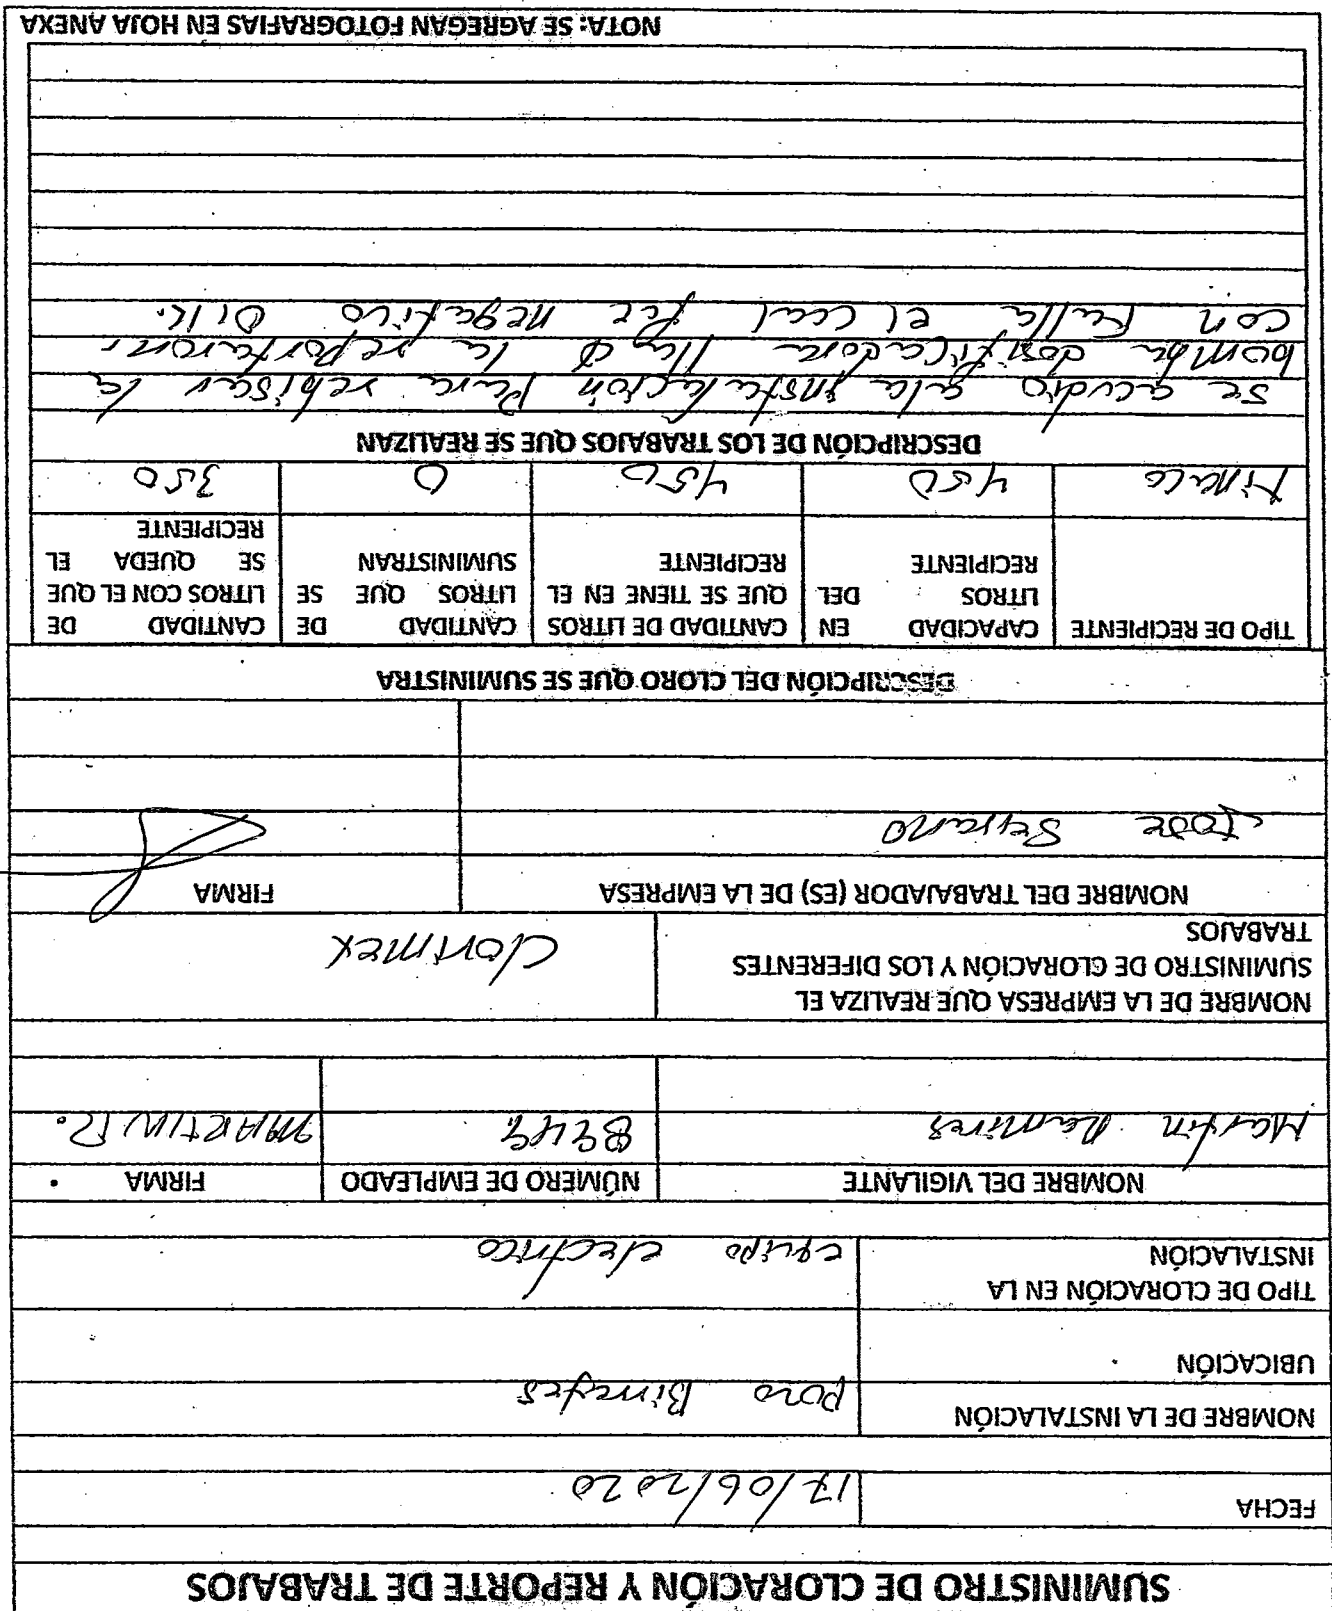 SUMINISTRO DE CLORACIÓN Y REPORTE DE TRABAJOS
FECHA 17/06/2020
NOMBRE DE LA INSTALACIÓN Poso Bimetes
UBICACIÓN
TIPO DE CLORACIÓN EN LA INSTALACIÓN equipo electrico
NOMBRE DEL VIGILANTE NÚMERO DE EMPLEADO FIRMA
Martin Ramires MARTIN R.
NOMBRE DE LA EMPRESA QUE REALIZA EL
SUMINISTRO DE CLORACIÓN Y LOS DIFERENTES
TRABAJOS
Clorimex
NOMBRE DEL TRABAJADOR (ES) DE LA EMPRESA FIRMA
Jose Serrano
DESCRIPCIÓN DEL CLORO QUE SE SUMINISTRA
TIPO DE RECIPIENTE
CAPACIDAD EN
LITROS DEL
RECIPIENTE
CANTIDAD DE LITROS
QUE SE TIENE EN EL
RECIPIENTE
CANTIDAD DE
LITROS QUE SE
SUMINISTRAN
CANTIDAD DE
LITROS CON EL QUE
SE QUEDA EL
RECIPIENTE
tinaco 450 450 0 350
DESCRIPCIÓN DE LOS TRABAJOS QUE SE REALIZAN
se acudio ala instalacion para rebisar la
bomba dosificadora llaq la reportaron
con falla el cual fue negativo
NOTA: SE AGREGAN FOTOGRAFIAS EN HOJA ANEXA